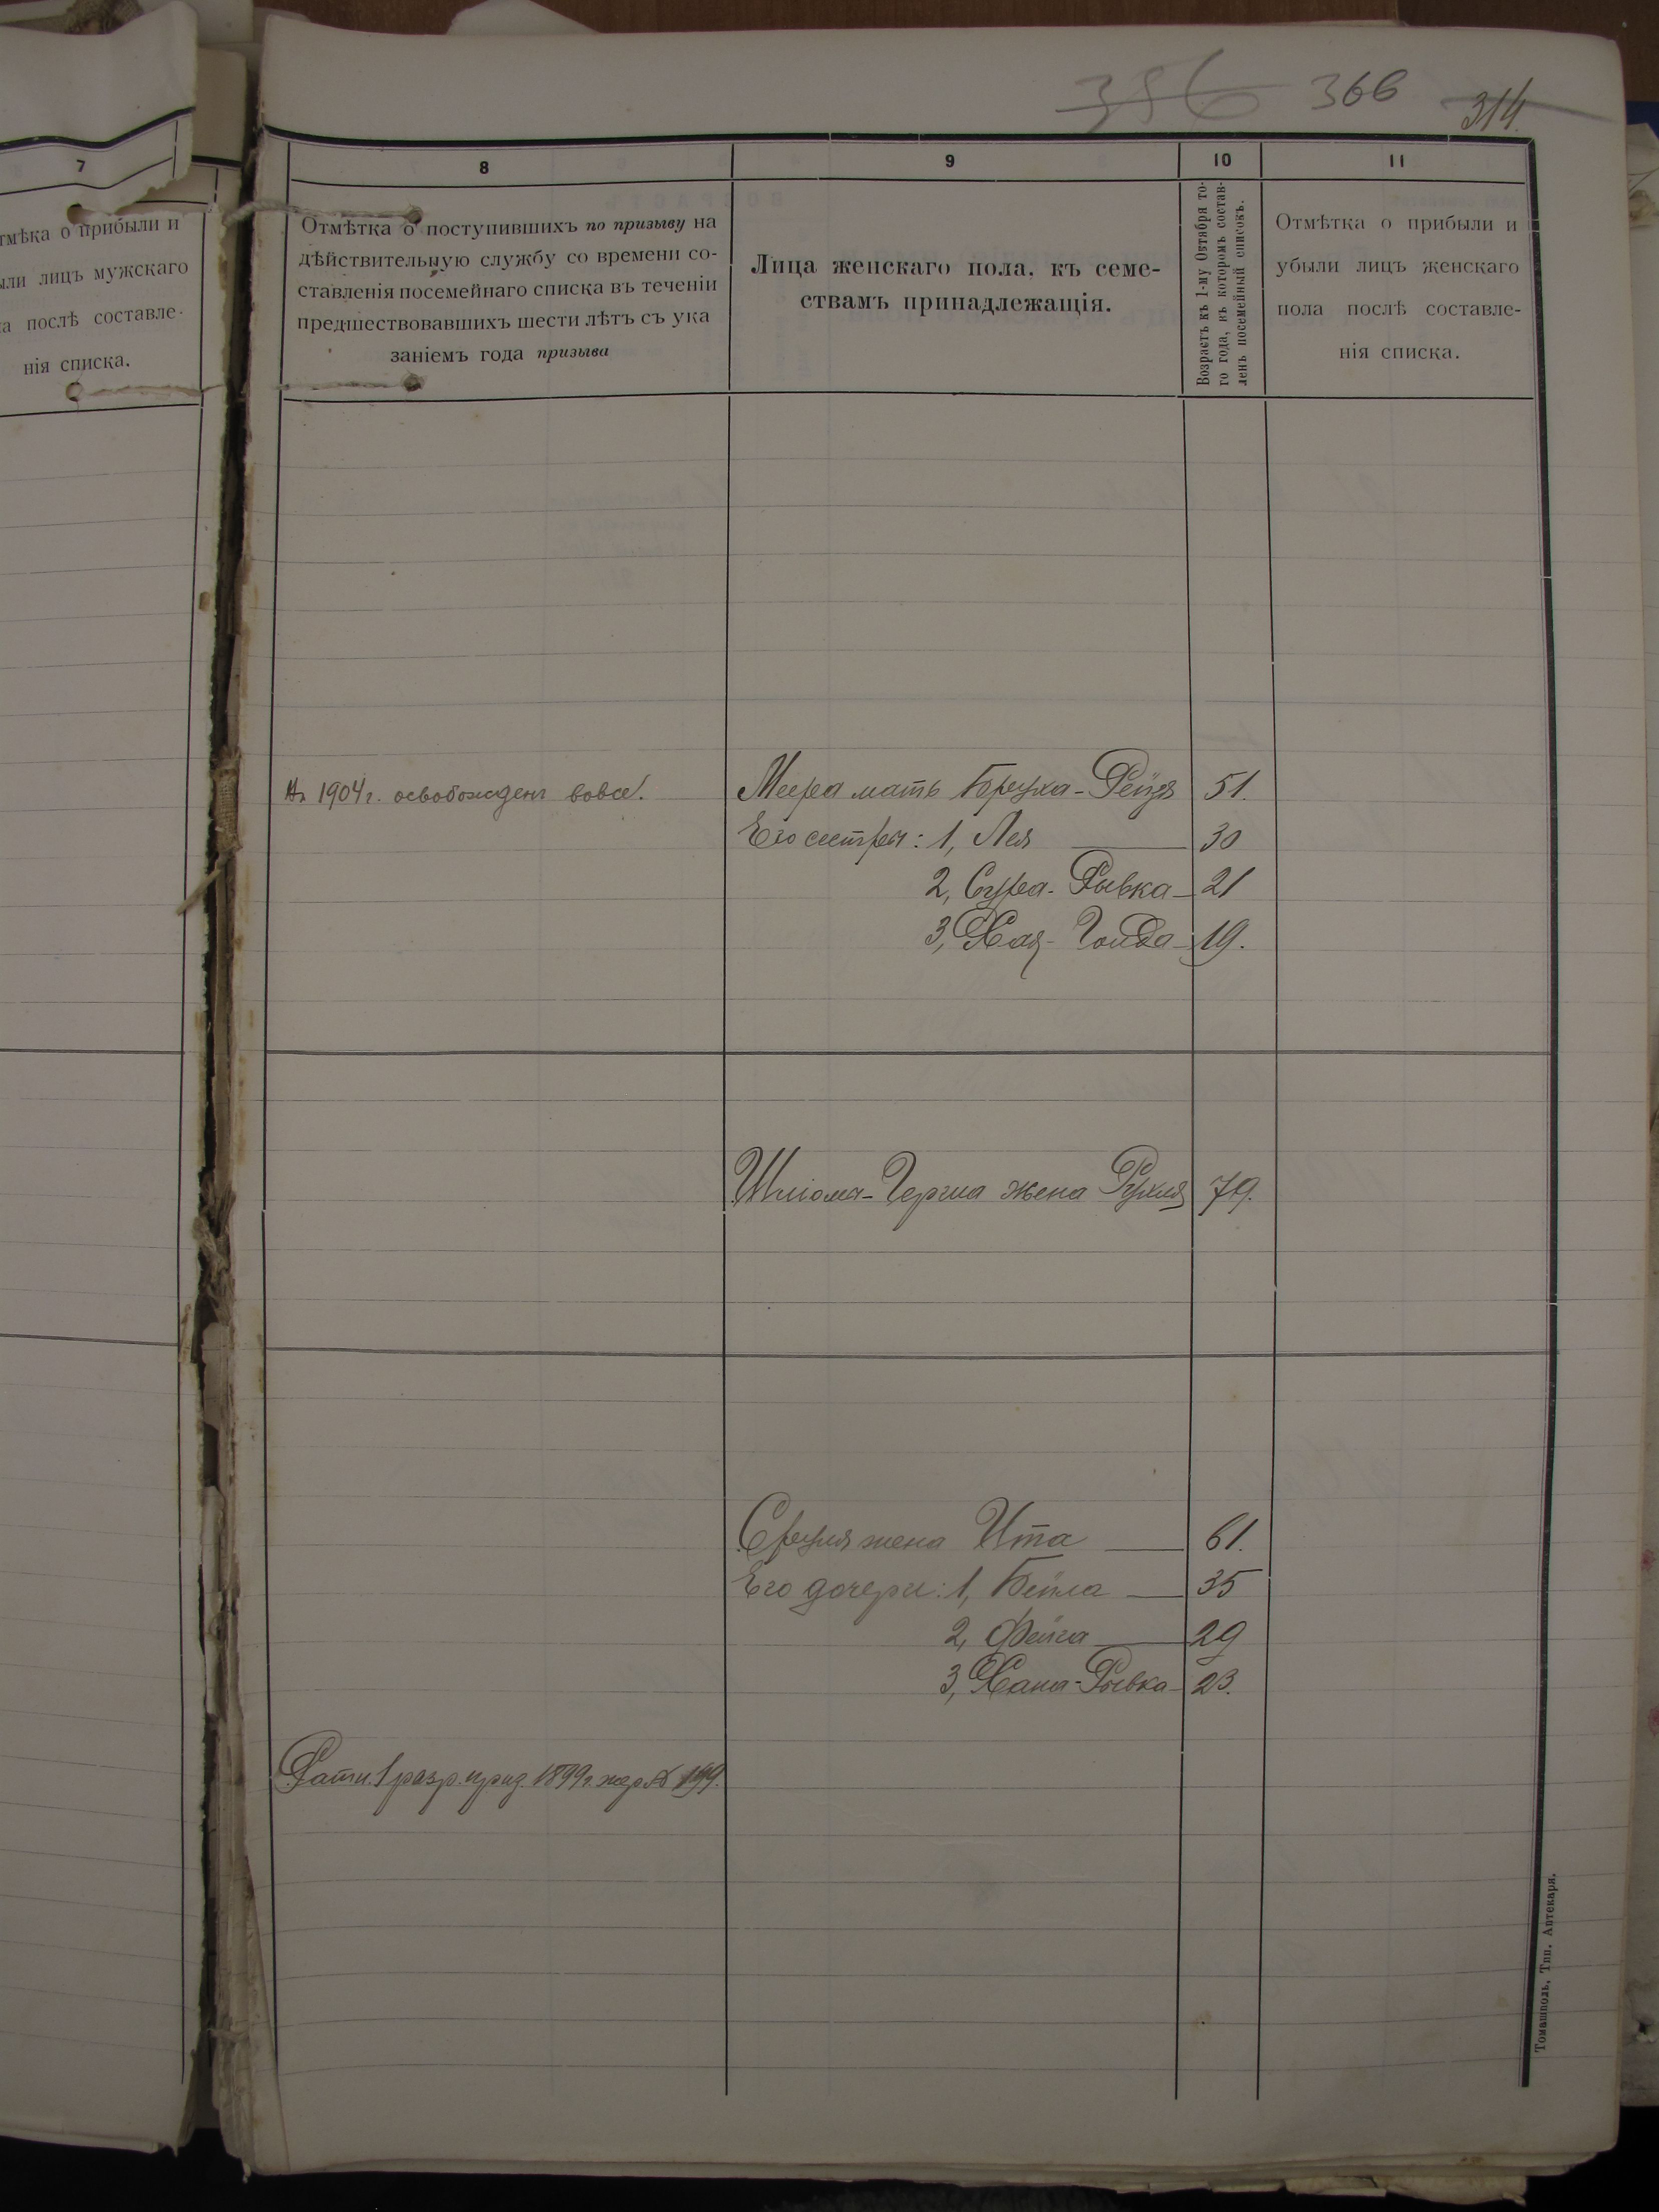 386 366 314.
7
тмѣка о прибыли и
ыли лицъ мужскаго
а послѣ составле-
нія списка.
8 9 10 11
Отмѣтка о поступившихъ по призыву на
дѣйствительную службу со времени со-
ставленія посемейнаго списка въ теченіи
предшествовавшихъ шести лѣтъ съ ука
заніемъ года призыва
Лица женскаго пола, къ семе-
ствамъ принадлежащія.
Возрастъ къ 1-му Октября то-
го года, въ которомъ состав-
ленъ посемейный списокъ.
Отмѣтка о прибыли и
убыли лицъ женскаго
пола послѣ составле-
нія списка.
1904 г. освобожденъ вовсе. Меера мать Бруха-Рейзя 51.
Его сестры: 1, Лея 30
2, Сура-Рывка 21
3, Хая-Голда 19.
Шліома-Герша жена Рухля 79.
Сруля жена Ита 61.
Его дочери: 1, Бейла 35
2, Фейга 29
3, Хана-Рывка 23.
Ратн. 1 разр. приз. 1899 г. жер. № 199.
Томашполь, Тип. Аптекаря.